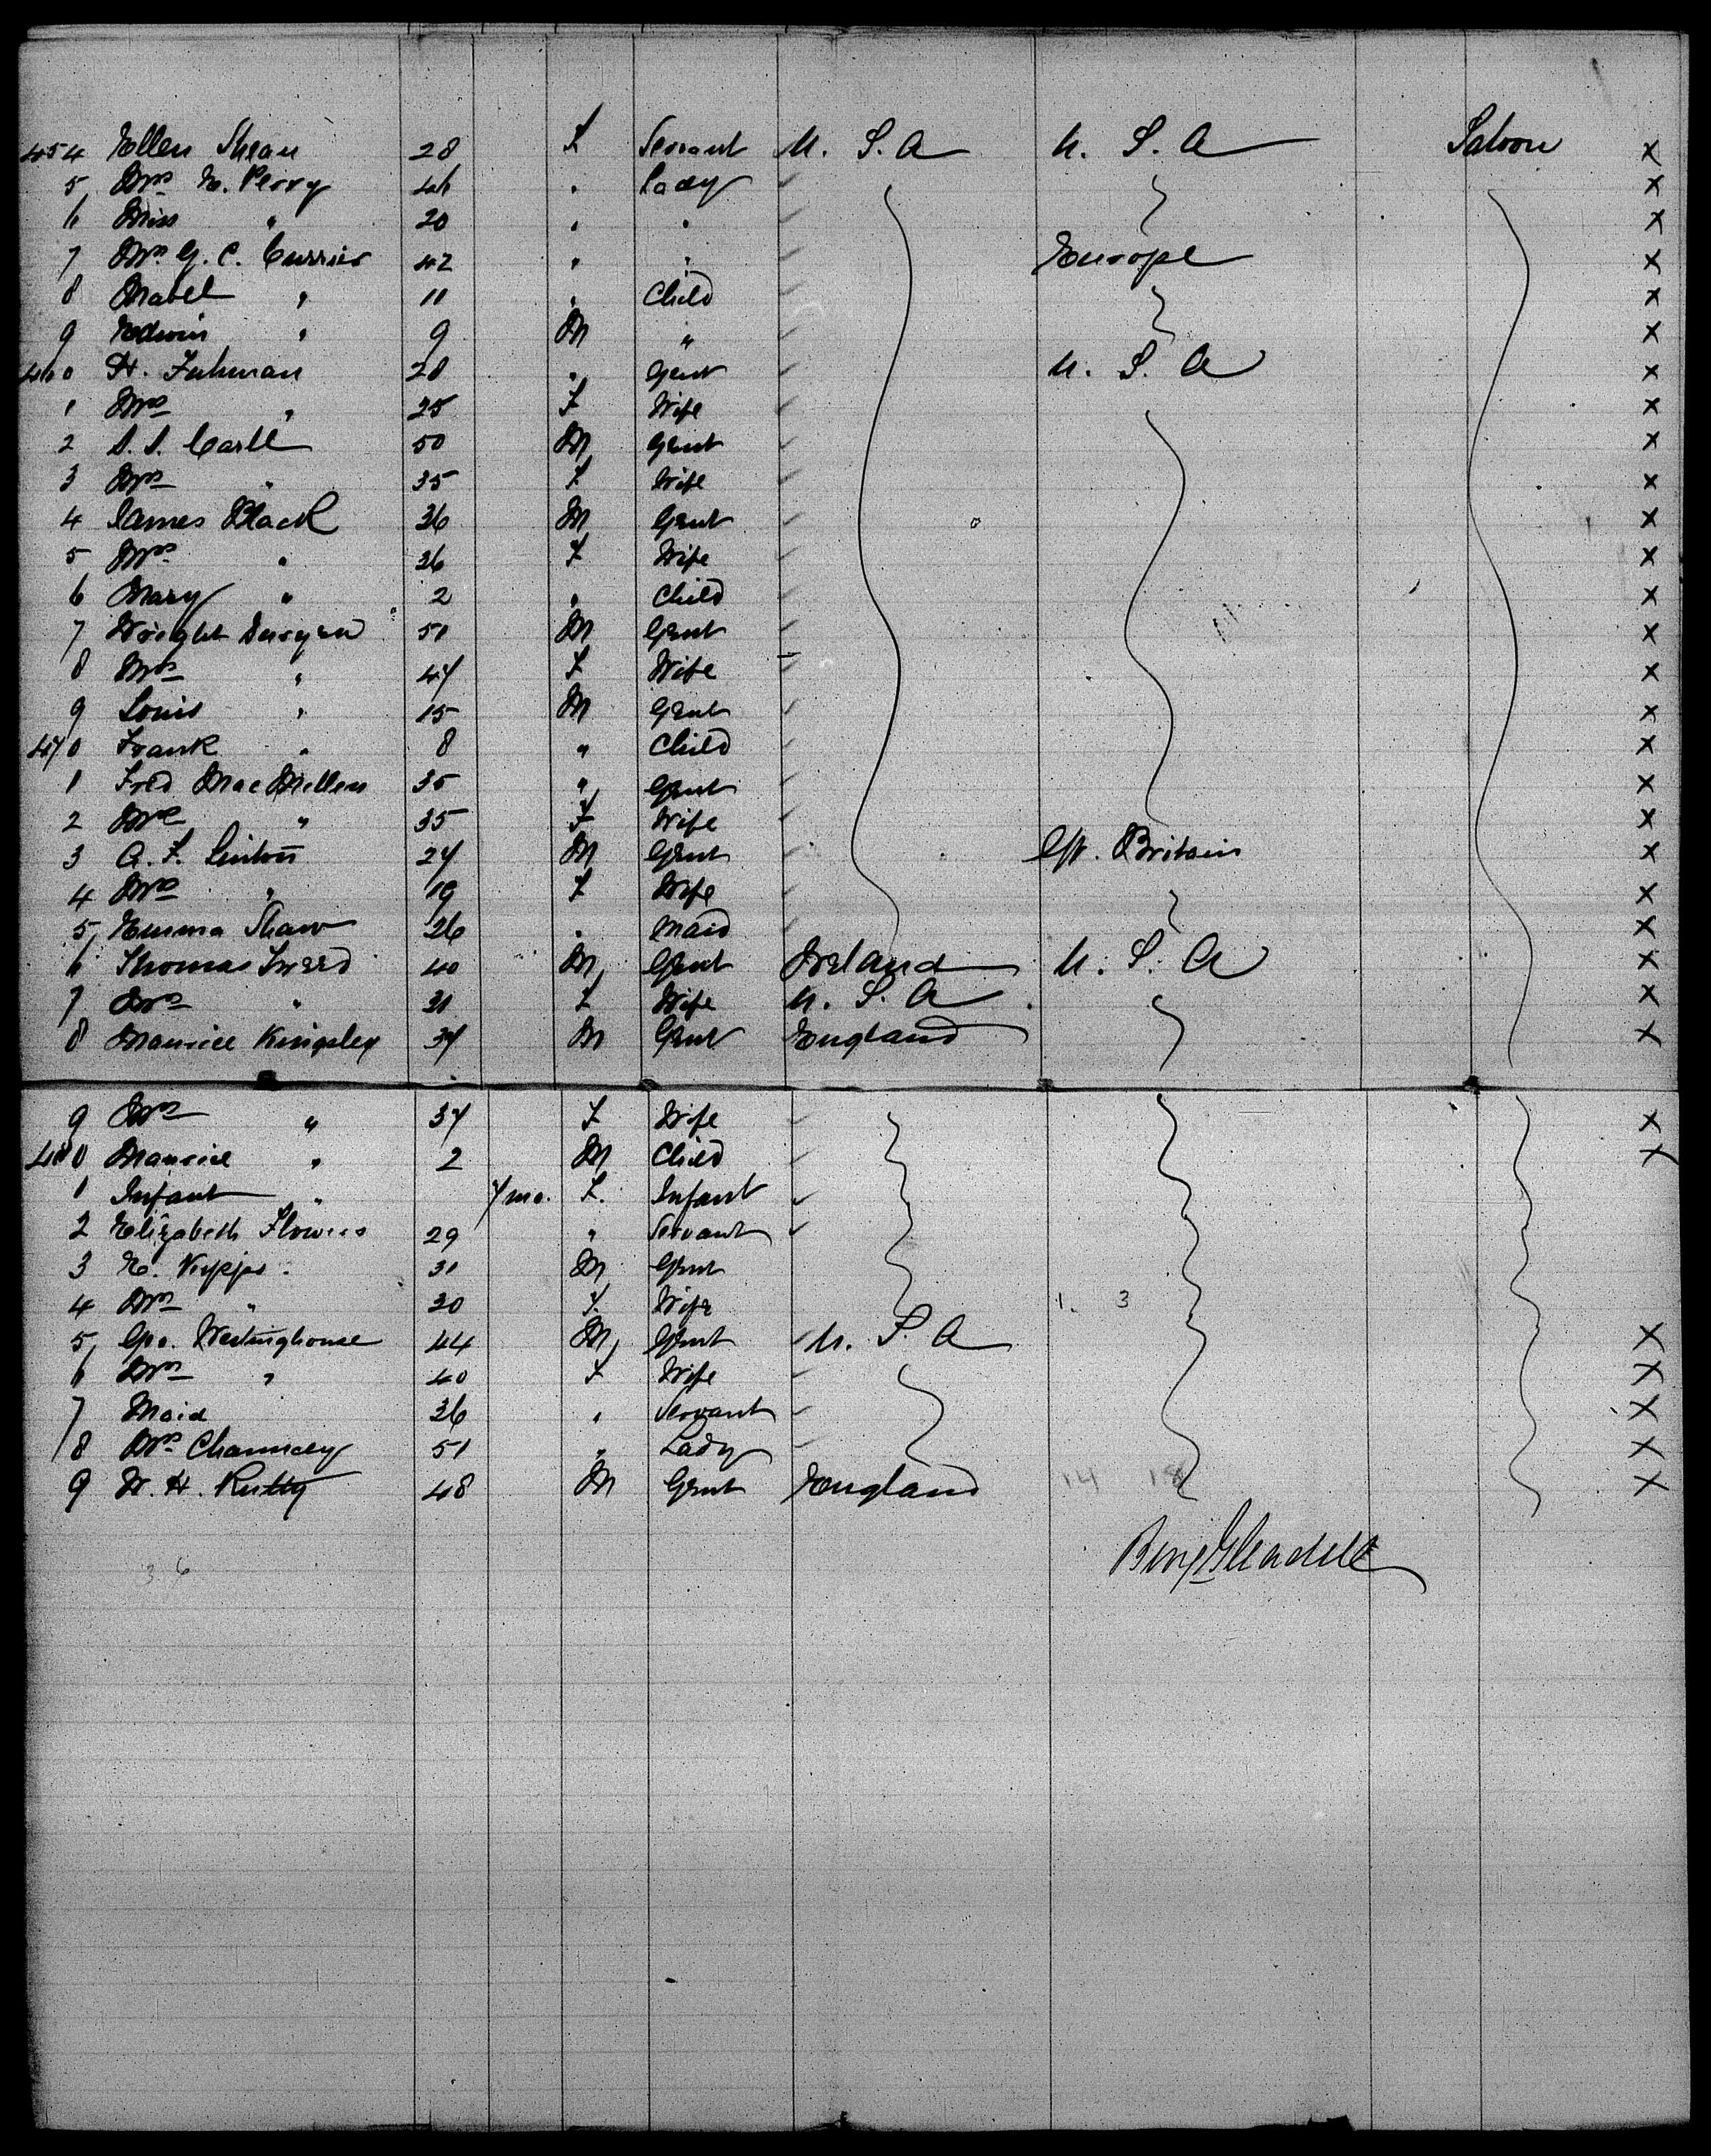 454 Ellen Shean 28 F Servant U. S. A U. S. A Saloon X
5 Mrs E. Perry 46 " Lady X
6 Miss " 20 " " X
7 Mrs G. C. Currier 42 " " Europe X
8 Mabel " 11 " Child X
9 Edwin " 9 M " X
460 H. Fuhrman 28 " Gent U. S. A X
1 Mrs " 25 F Wife X
2 S. S. Carll 50 M Gent X
3 Mrs " 35 F Wife X
4 James Black 36 M Gent X
5 Mrs " 36 F Wife X
6 Mary " 2 " Child X
7 Wright Duryea 51 M Gent X
8 Mrs " 47 F Wife X
9 Louis " 15 M Gent X
470 Frank " 8 " Child X
1 Fred MacMillen 35 " Gent X
2 Mrs " 35 F Wife X
3 A. F. Linton 27 M Gent Gt. Britain X
4 Mrs " 19 F Wife X
5 Emma Shaw 26 " Maid X
6 Thomas Tweed 40 M Gent Ireland U. S. A X
7 Mrs " 31 F Wife U. S. A X
8 Maurice Kingsley 37 M Gent England X
9 Mrs " 37 F Wife X
480 Maurice " 2 M Child X
1 Infant " 7 mo. F. Infant
2 Elizabeth Flowers 29 " Servant
3 E. 31 M Gent
4 Mrs " 30 F. Wife 1. 3
5 Geo. Westinghouse 44 M Gent U. S. A X
6 Mrs " 40 F Wife X
7 Maid 36 " Servant X
8 Mrs Chauncey 51 " Lady X
9 W. H. Rutty 48 M Gent England 14 18 X
Benj Gleadell
3 6